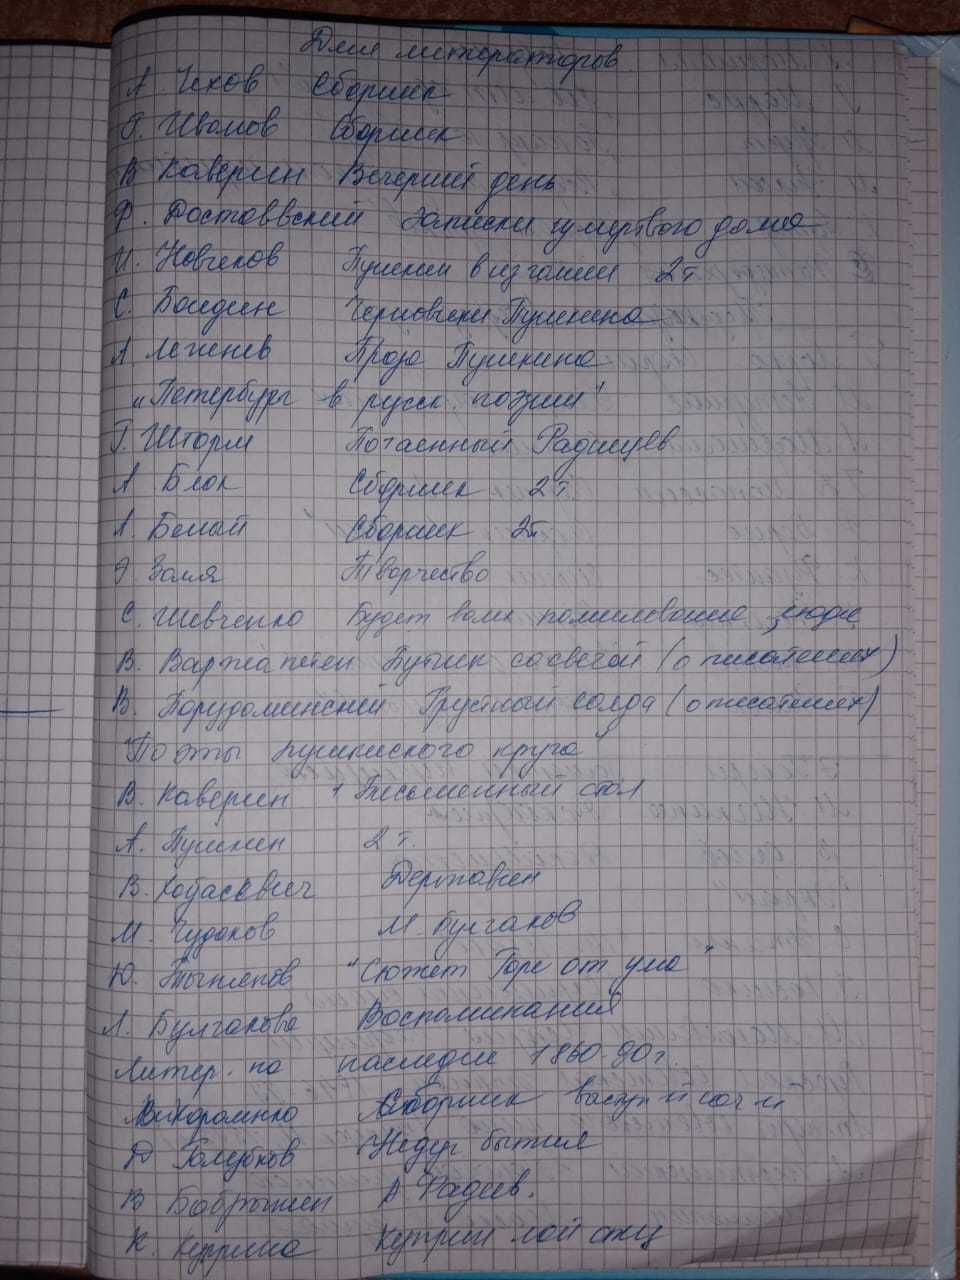 Для литераторов
А. Чехов Сборник
Г. Иванов Сборник
В Каверин Вечерний день
Ф. Достоввский Записки из мертвого дома
И. Новиков Пушкин в изгнании 2 т.
С. Бонди Черновики Пушкина
А Лежнев Проза Пушкина
„Петербург в русск. поэзии"
Г. Шторм Потаенный Радищев
А Блок Сборник 2 т.
А. Белый Сборник 2т
Э Золя Творчество
С. Шевченко Будет вам помилование, люди
В. Вартка Путник со свечой (о писателях)
В. Порудоминский Грустный солдат (о писателях)
"Поэты пушкинского круга"
В. Каверин Письменный стол
А. Пушкин 2 т.
В. Державин
М. Чудаков М. Булгаков
Ю. Тынянов "Сюжет Горе от ума"
Л. Булгакова Воспоминания
Литер. по наследие 1860-90 г.
Сборник
Д Голубков Недуг бытия
В А Фадеев.
К. Куприна Куприн мой отец